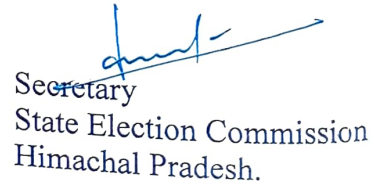 Secretary
State Election Commission
Himachal Pradesh.